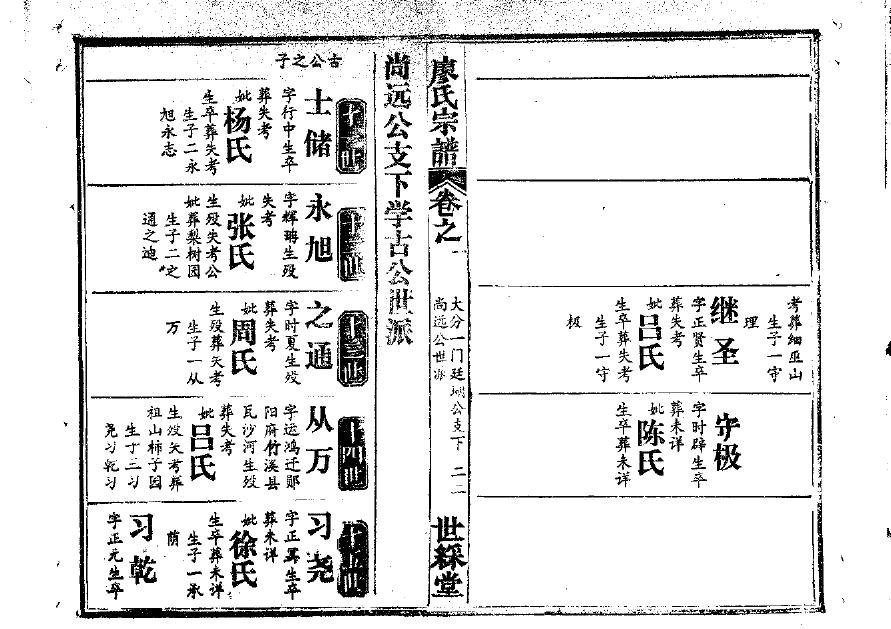 考葬细巫山
生子一守
理
继圣
字正贤生卒
葬失考
妣吕氏
生卒葬失考
生子一守
极
守极
字时辟生卒
葬未详
妣陈氏
生卒葬未详
廖氏宗谱
卷之一
大分一门廷瑚公支下
尚远公世派
二二
世綵堂
尚远公支下学古公世派
古公之子
十一世
士储
字行中生卒
葬失考
妣杨氏
生卒葬失考
生子二永
旭永志
十二世
永旭
字辉骋生殁
失考
妣张氏
生殁失考公
妣葬梨树园
生子二定
通之迪
十三世
之通
字时夏生殁
葬失考
妣周氏
生殁葬失考
生子一从
万
十四世
从万
字运鸿迁郧
阳府竹溪县
瓦沙河生殁
葬失考
妣吕氏
生殁失考葬
祖山柿子园
生子三习
尧习乾习
十五世
习尧
字正冪生卒
葬未详
妣徐氏
生卒葬未详
生子一承
荫
习乾
字正元生卒